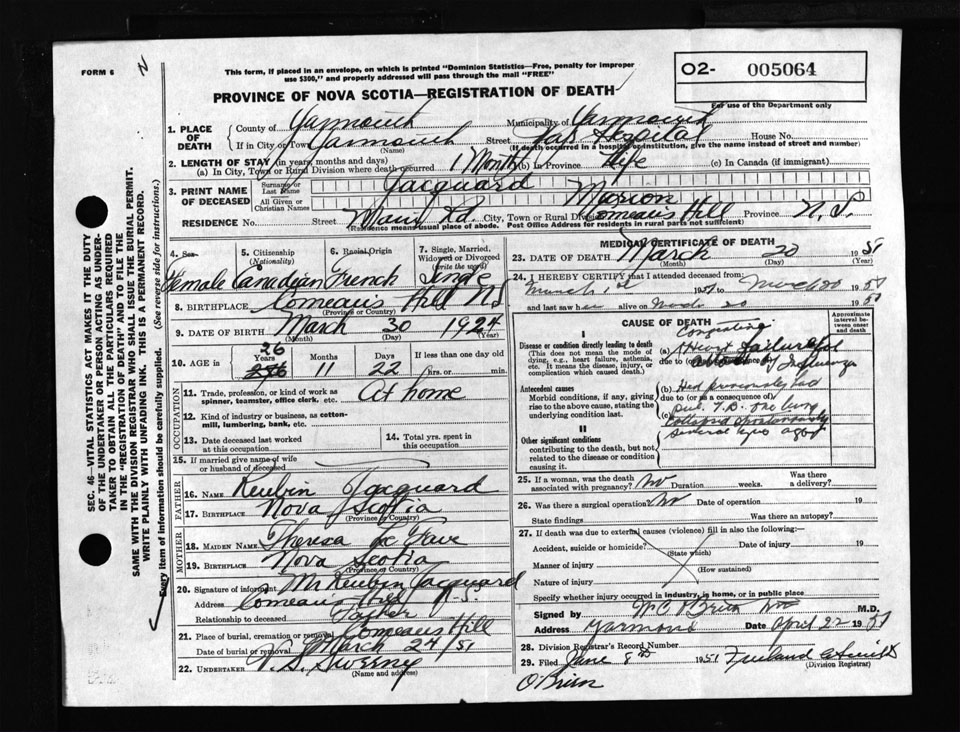 FORM 6
This form, if placed in an envelope, on which is printed "Dominion Statistics—Free, penalty for improper
use $300," and properly addressed will pass through the mail "FREE"
O2- 005064
For use of the Department only
PROVINCE OF NOVA SCOTIA—REGISTRATION OF DEATH
1. PLACE OF DEATH
County of Yarmouth Municipality of Yarmouth
If in City or Town Yarmouth Street Hospital House No.
(Name) (If death occurred in a hospital or institution, give the name instead of street and number)
2. LENGTH OF STAY (in years, months and days)
(a) In City, Town or Rural Division where death occurred 1 Month (b) In Province Life (c) In Canada (if immigrant)
3. PRINT NAME OF DECEASED
Surname or Last Name Jacquard
All Given or Christian Names Marion
RESIDENCE No. Street Main Rd. City, Town or Rural Division Comeau's Hill Province N.S.
Residence means usual place of abode. Post Office Address for residents in rural parts not sufficient)
4. Sex Female
5. Citizenship (Nationality) Canadian
6. Racial Origin French
7. Single, Married, Widowed or Divorced (write the word) Single
8. BIRTHPLACE Comeau's Hill NS
(Province or Country)
9. DATE OF BIRTH March 30 1924
(Month) (Day) (Year)
10. AGE in 26 Years 11 Months 22 Days If less than one day old hrs. or min.
OCCUPATION
11. Trade, profession, or kind of work as spinner, teamster, office clerk, etc. At home
12. Kind of industry or business, as cotton-mill, lumbering, bank, etc.
13. Date deceased last worked at this occupation
14. Total yrs. spent in this occupation
15. If married give name of wife or husband of deceased
FATHER
16. NAME Reubin Jacquard
17. BIRTHPLACE Nova Scotia
(Province or Country)
MOTHER
18. MAIDEN NAME Theresa Le Fave
19. BIRTHPLACE Nova Scotia
(Province or Country)
20. Signature of informant Mr Reubin Jacquard
Address Comeau's Hill N.S.
Relationship to deceased Father
21. Place of burial, cremation or removal Comeau's Hill
Date of burial or removal March 24/51
22. UNDERTAKER V. S. Sweeny
(Name and address)
MEDICAL CERTIFICATE OF DEATH
23. DATE OF DEATH March 20 1951
(Month) (Day) (Year)
24. I HEREBY CERTIFY that I attended deceased from:
March 1st 1951 to March 20 1951
and last saw her alive on March 20 1951
CAUSE OF DEATH
Approximate interval between onset and death
I
Disease or condition directly leading to death
(This does not mean the mode of dying, e.g., heart failure, asthenia, etc. It means the disease, injury, or complication which caused death.)
(a) Congestive Heart failure
due to (or as a consequence of) by Influenza
Antecedent causes
Morbid conditions, if any, giving rise to the above cause, stating the underlying condition last.
(b) Had previously had
due to (or as a consequence of)
pul. T.B. one lung
(c) Collapsed spontaneously
several yrs ago
II
Other significant conditions
contributing to the death, but not related to the disease or condition causing it.
25. If a woman, was the death associated with pregnancy? No Duration weeks. Was there a delivery?
26. Was there a surgical operation? No Date of operation 19
State findings Was there an autopsy?
27. If death was due to external causes (violence) fill in also the following:
Accident, suicide or homicide? Date of injury 19
(State which)
Manner of injury
(How sustained)
Nature of injury
Specify whether injury occurred in industry, in home, or in public place
Signed by W C O'Brien M.D.
Address Yarmouth Date April 22 1951
28. Division Registrar's Record Number
29. Filed June 8th 1951
(Division Registrar)
O'Brien
SEC. 46—VITAL STATISTICS ACT MAKES IT THE DUTY
OF THE UNDERTAKER OR PERSON ACTING AS UNDER-
TAKER TO OBTAIN ALL THE PARTICULARS REQUIRED
IN THE "REGISTRATION OF DEATH" AND TO FILE THE
SAME WITH THE DIVISION REGISTRAR WHO SHALL ISSUE THE BURIAL PERMIT.
WRITE PLAINLY WITH UNFADING INK. THIS IS A PERMANENT RECORD.
Every item of information should be carefully supplied. (See reverse side for instructions.)